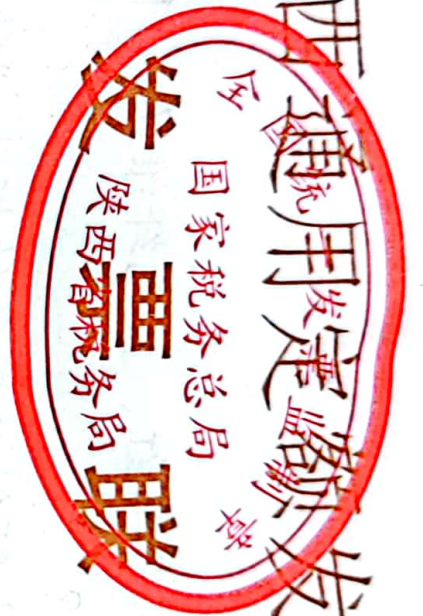 西通用定额发
全国统一发票监制章
国家税务总局
陕西省税务局
发票联